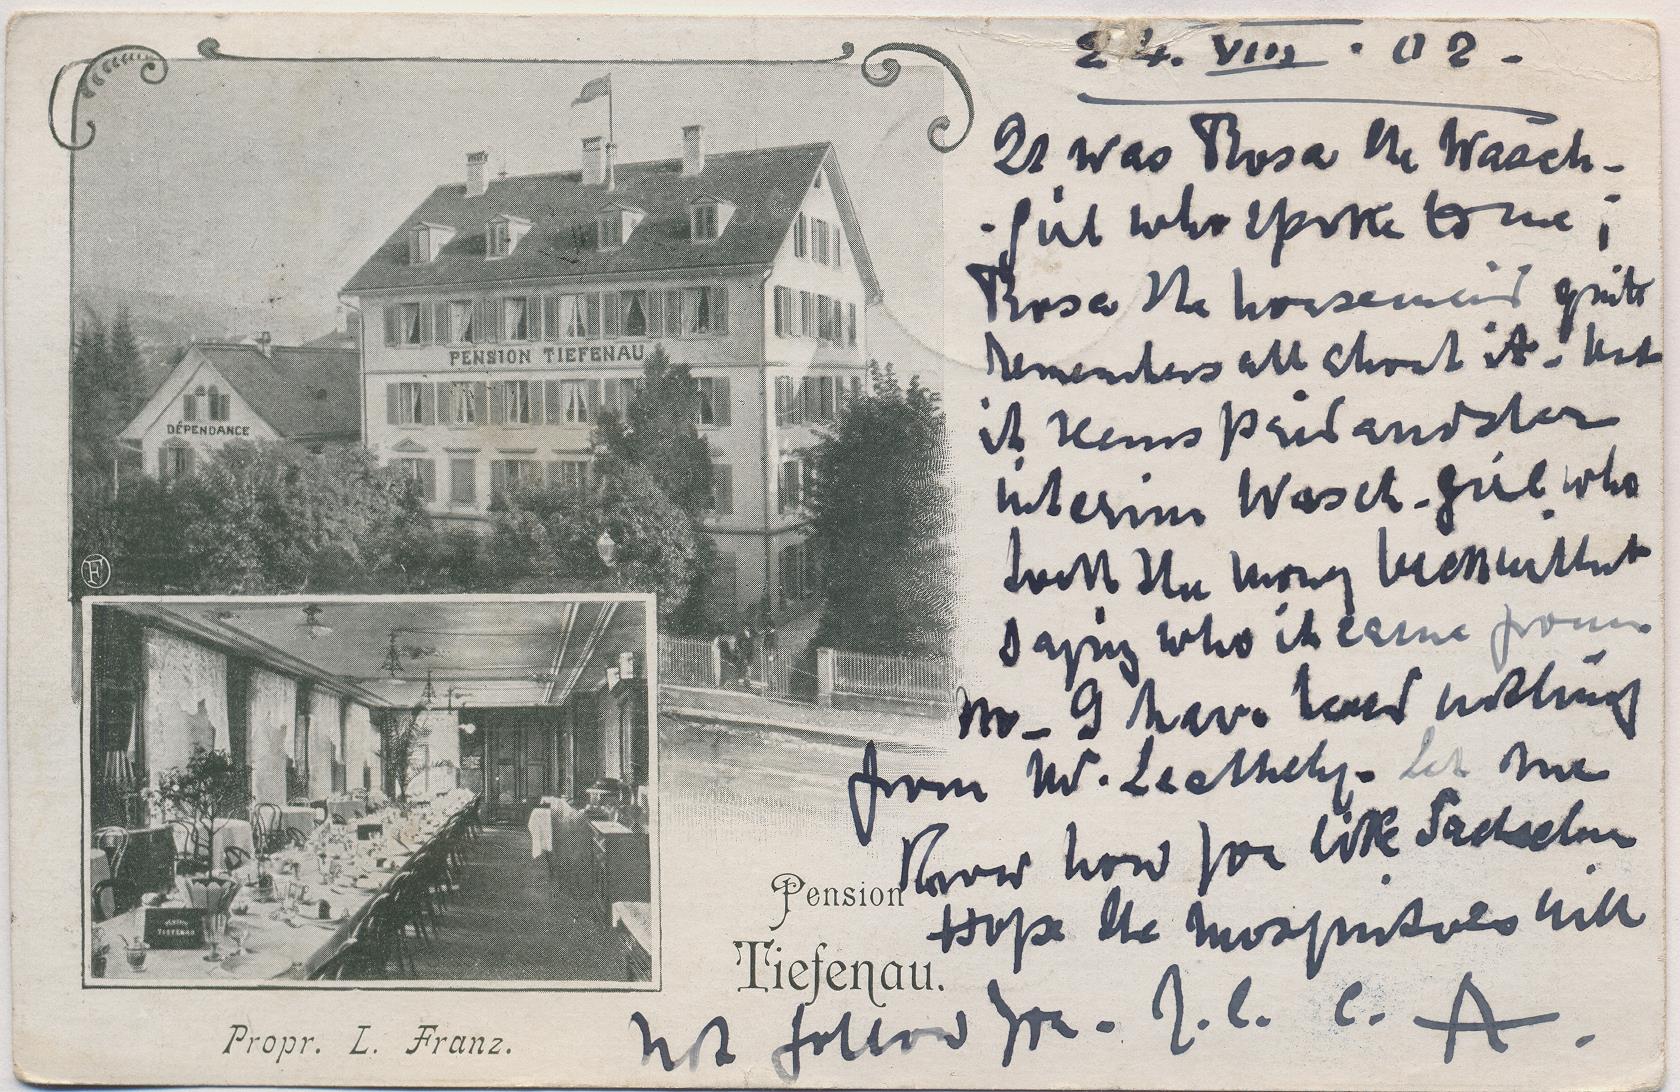 24. VIII. 02.
It was Rosa the Wasch-
-girl who spoke to me;
Rosa the housemaid quite
remembers all about it - but
it seems paid and other
interim Wasch-girl who
took the money back without
saying who it came from
no - I have heard nothing
from Mr.
Let me
know how you like Sachseln
Hope the mosquitoes will
not follow you. J. C. C. A.
PENSION TIEFENAU
DÉPENDANCE
F
PENSION
TIEFENAU
Pension
Tiefenau.
Propr. L. Franz.